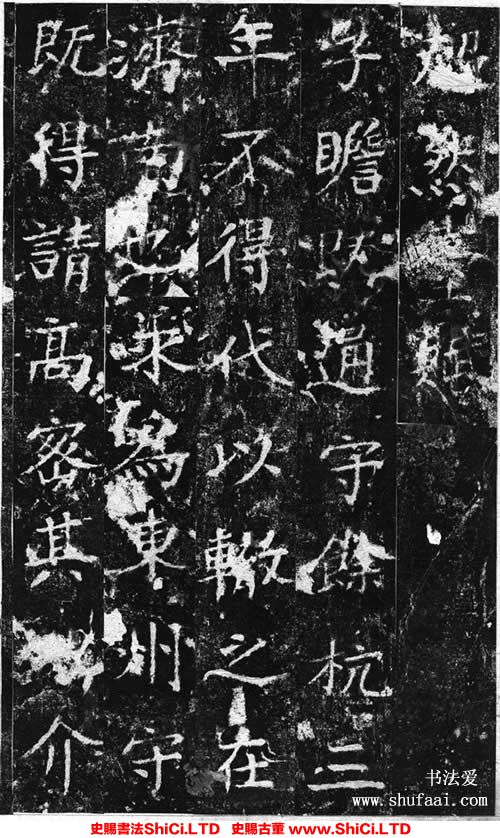 超然臺賦
子瞻既通守餘杭三
年不得代以轍之在
濟南也求爲東州守
既得請高密其介
书法爱
www.shufaai.com
史賜書法ShiCi.LTD 史賜古董 www.ShiCi.LTD